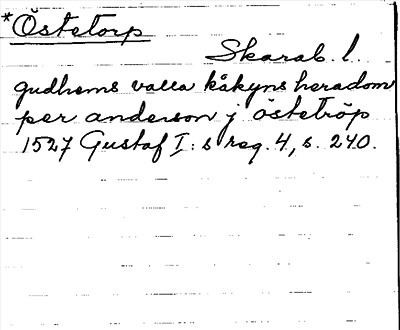 *Östetorp
Skarab. l.
gudhems valla kåkyns heradom
per anderson j östetröp
1527 Gustaf I:s reg. 4, s. 240.